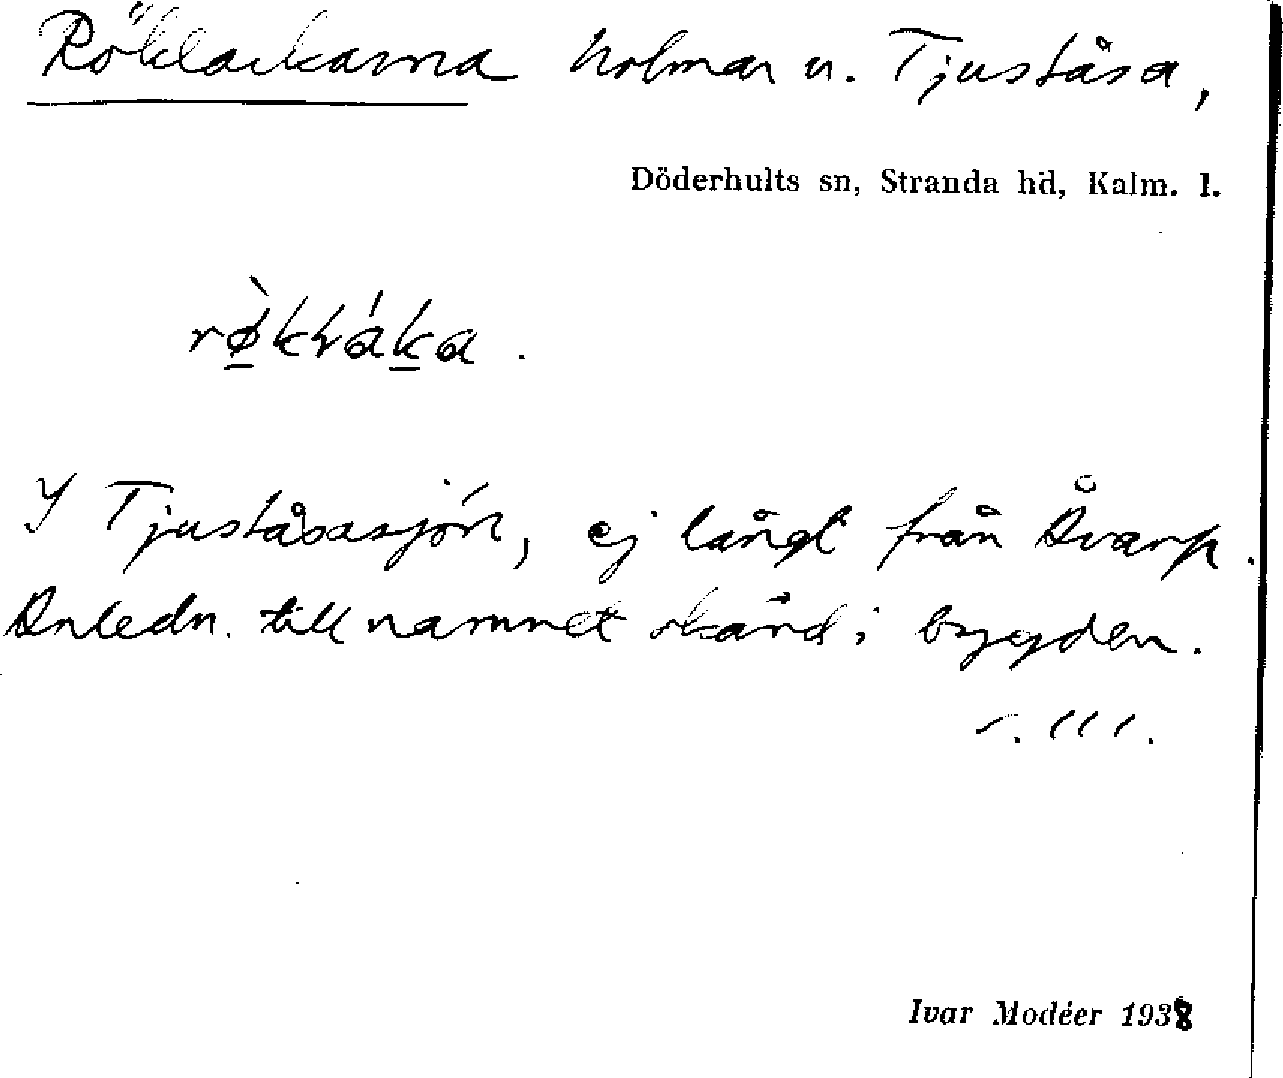 Röklackarna holmar u. Tjuståsa,
Döderhults sn, Stranda hd, Kalm. l.
I Tjuståsasjön, ej långt från Åvarp.
Anledn. till namnet okänd i bygden.
Ivar Modéer 1938